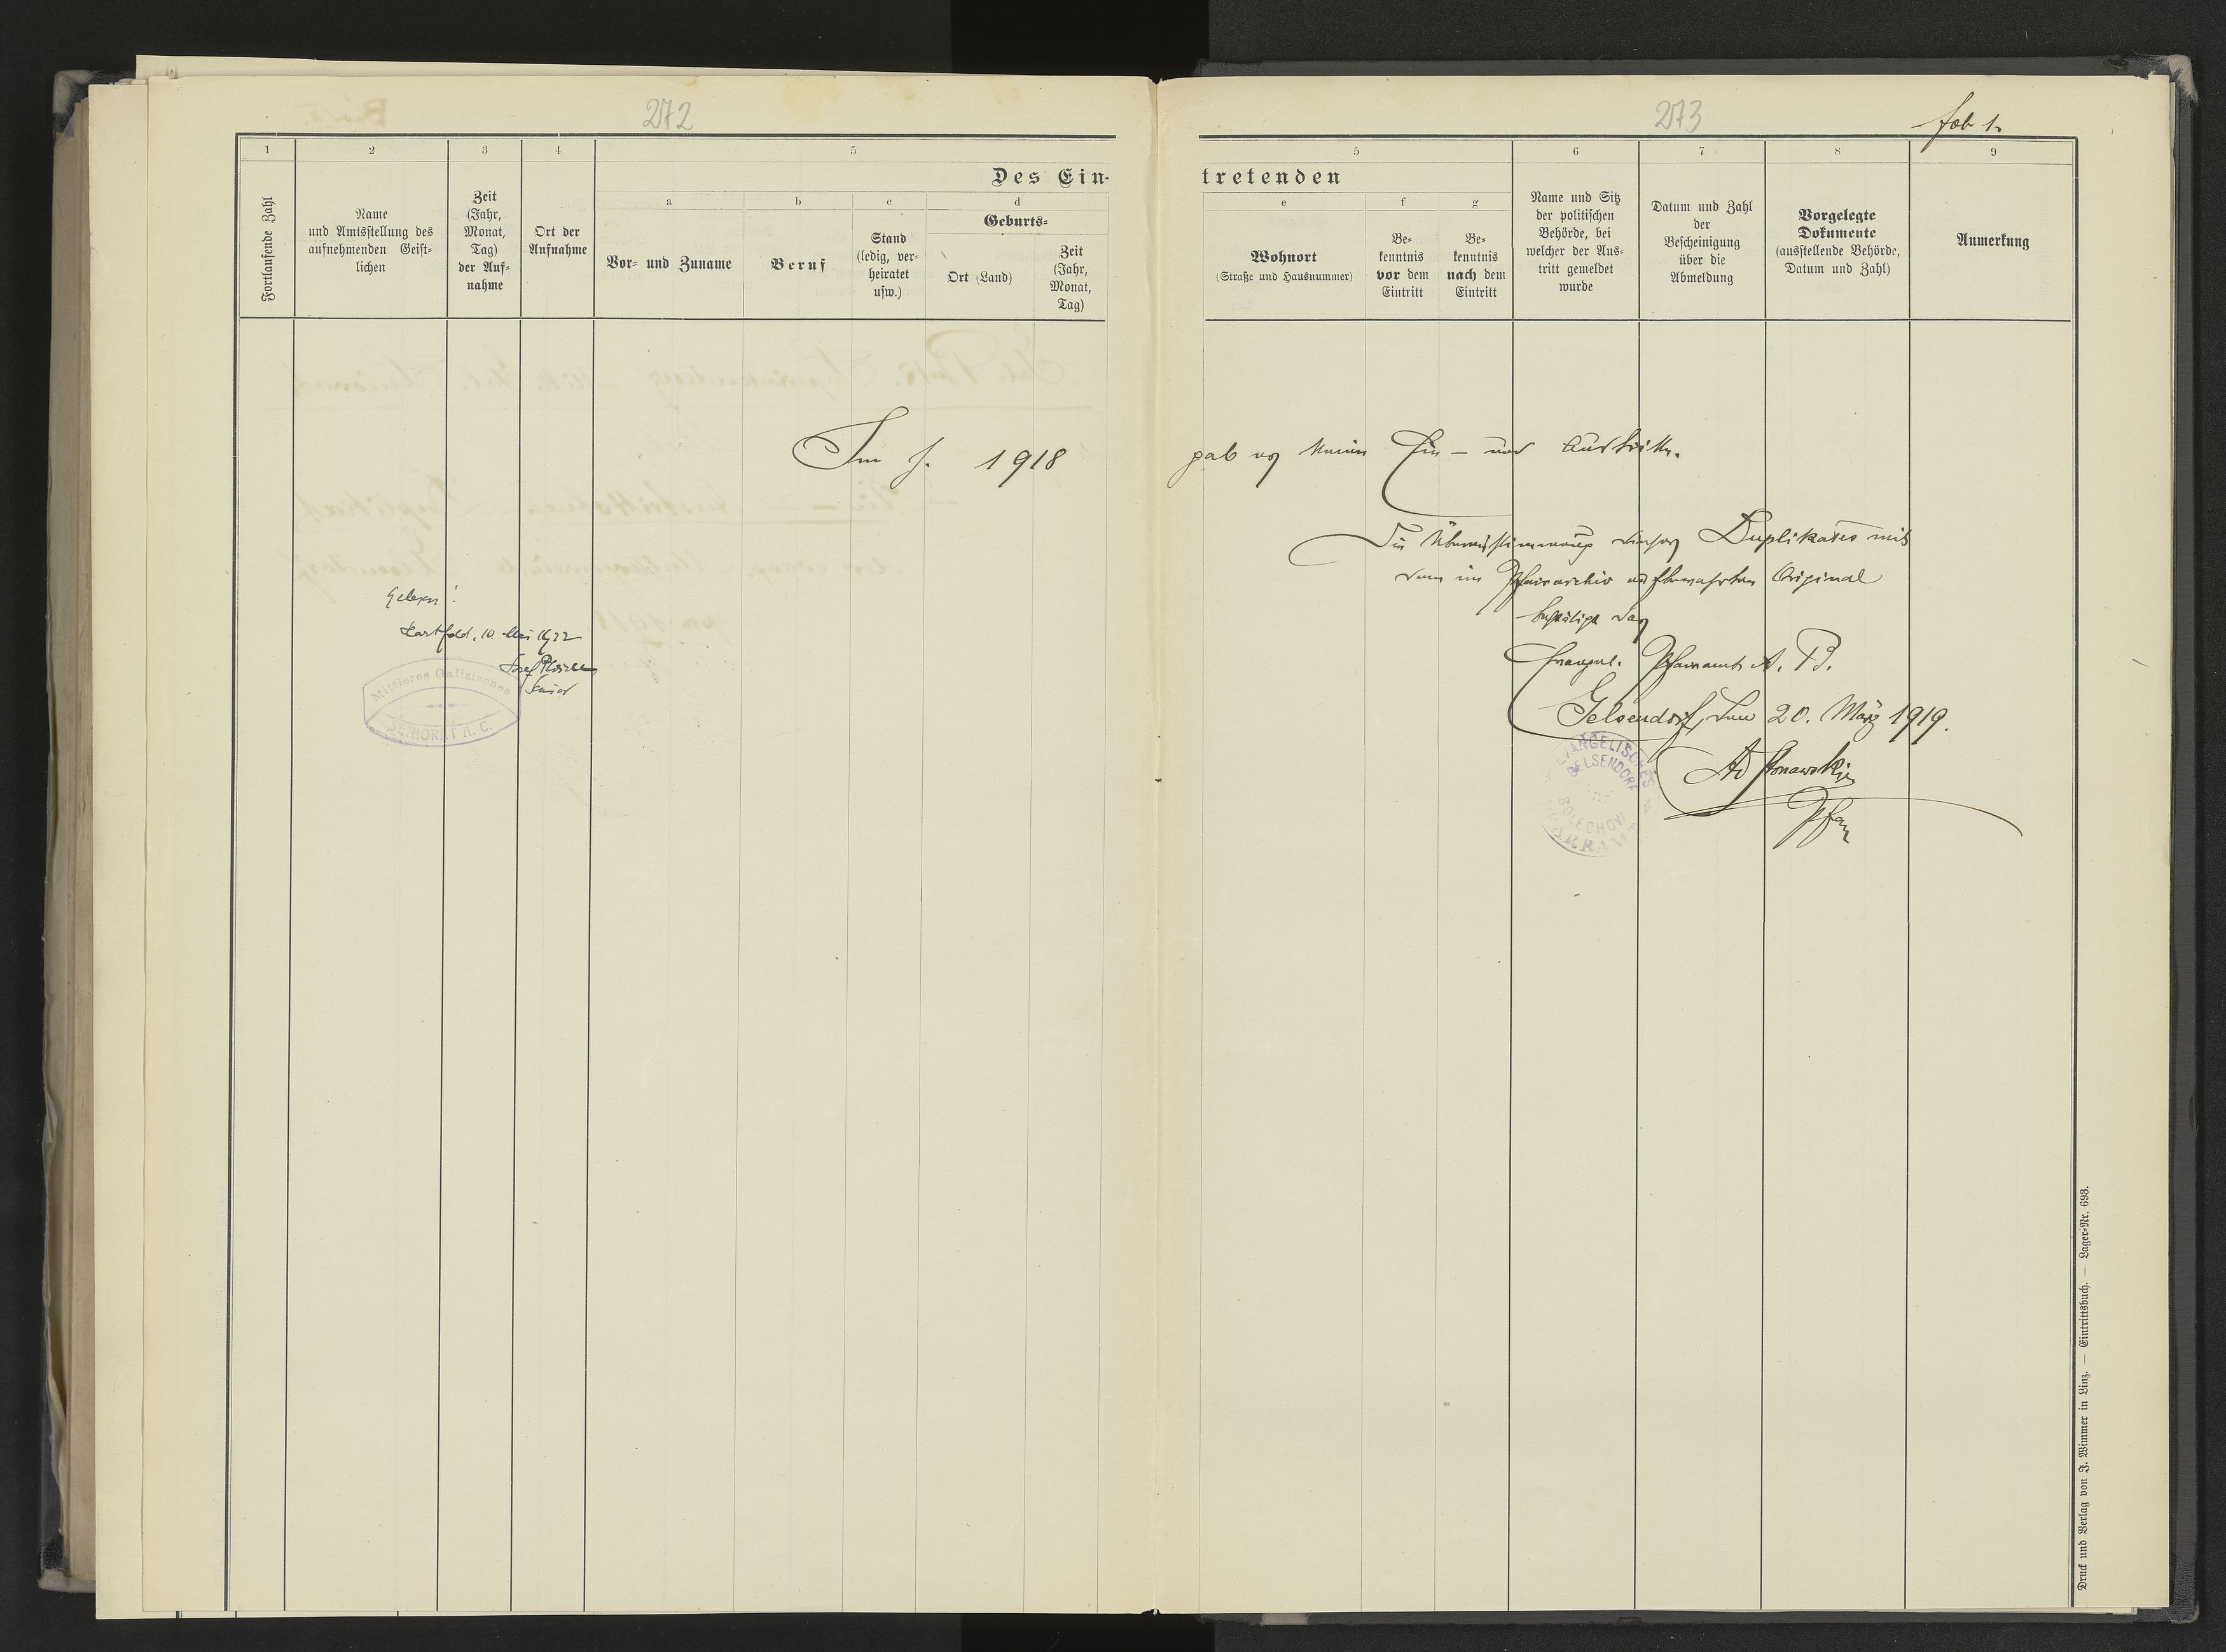 272
1
2
3
4
5
Des Ein-
Fortlaufende Zahl
Name
und Amtsstellung des
aufnehmenden Geist-
lichen
Zeit
(Jahr,
Monat,
Tag)
der Auf-
nahme
Ort der
Aufnahme
a
Vor- und Zuname
b
Beruf
c
Stand
(ledig, ver-
heiratet
usw.)
d
Geburts-
Ort (Land)
Zeit
(Jahr,
Monat,
Tag)
Im J. 1918
Gelesen!
Hartfeld, 10. Mai 1922
Josef
Senior
Mittleres Galizisches
SENIORAT A. C.
273
fol 1.
5
6
7
8
9
tretenden
e
Wohnort
(Straße und Hausnummer)
f
Be-
kenntnis
vor dem
Eintritt
g
Be-
kenntnis
nach dem
Eintritt
Name und Sitz
der politischen
Behörde, bei
welcher der Aus-
tritt gemeldet
wurde
Datum und Zahl
der
Bescheinigung
über die
Abmeldung
Vorgelegte
Dokumente
(ausstellende Behörde,
Datum und Zahl)
Anmerkung
gab es keine Ein- und Austritte.
Die Übereinstimmung dieses Duplikates mit
dem im Pfarrarchiv aufbewahrten Original
bestätigt das
Evangel. Pfarramt A. B.
Gelsendorf, den 20. März 1919.
Pfarr
EVANGELISCHES
GELSENDORF
BOLECHOW
PFARRAMT
Druck und Verlag von J. Wimmer in Linz. — Eintrittsbuch. — Lager-Nr. 693.